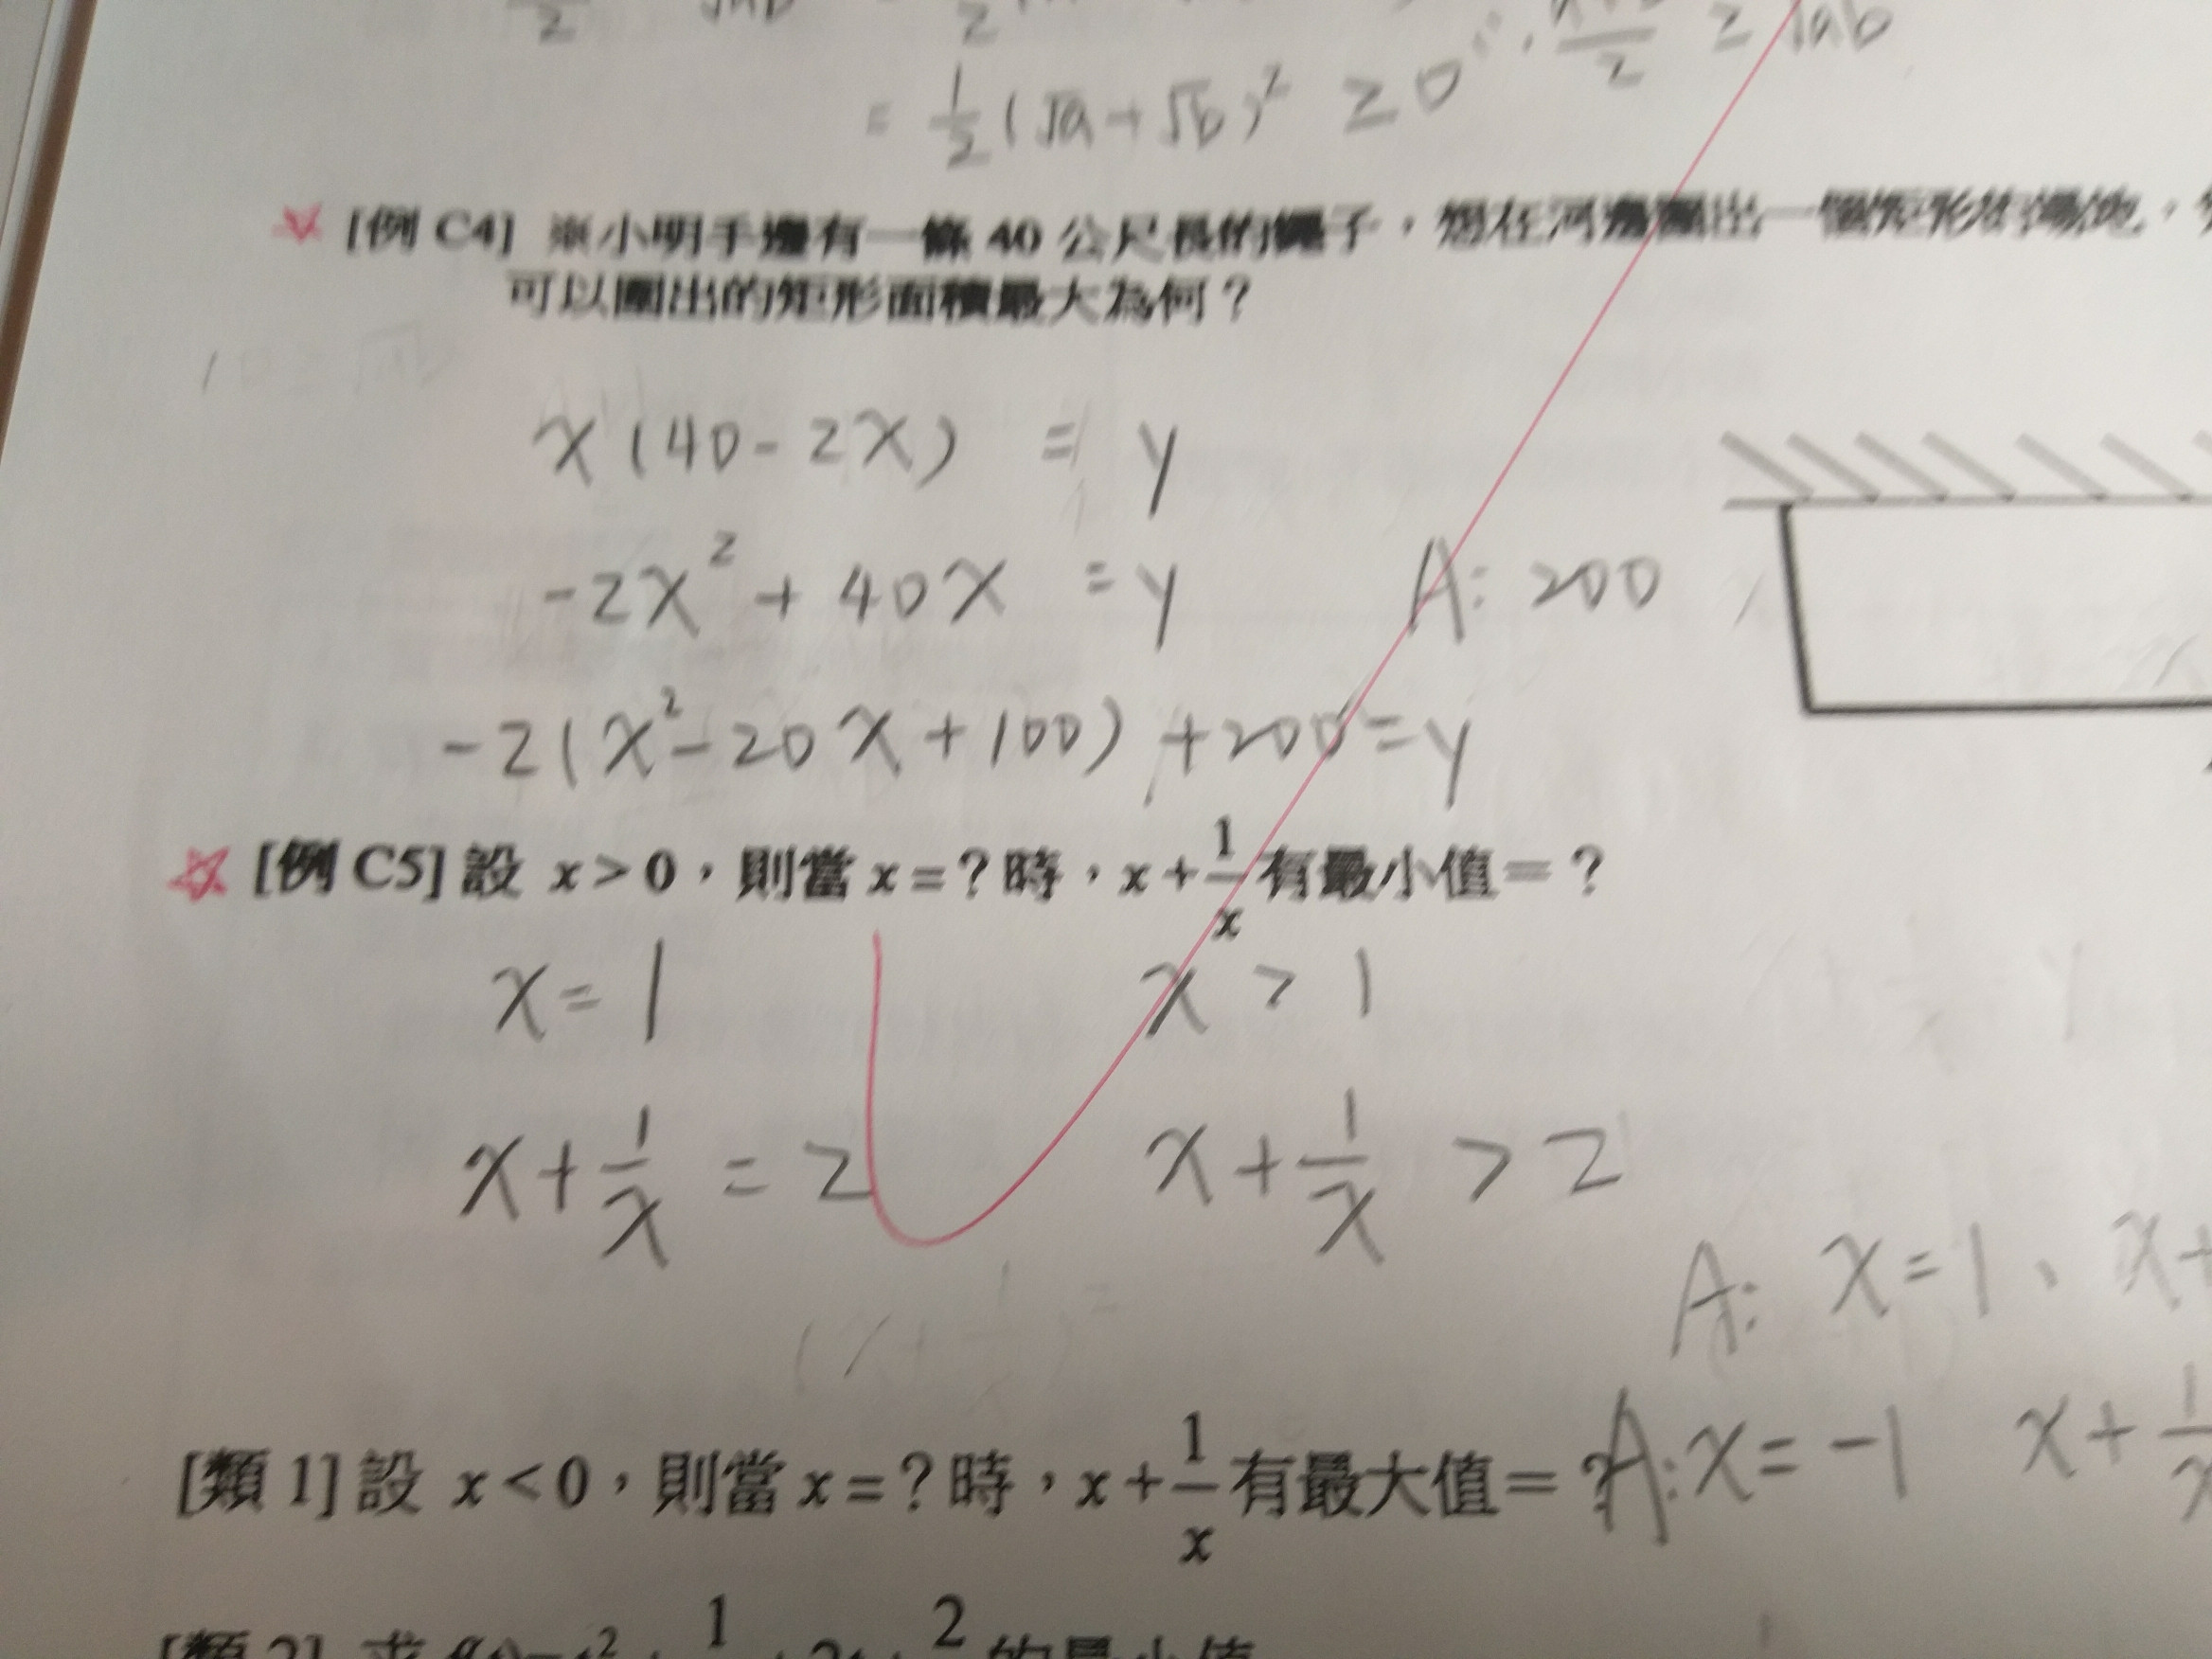 = 1/2 (√a + √b)² ≥ 0 ∴ /2 ≥ √ab
[例 C4] ※小明手邊有一條 40 公尺長的繩子，想在河邊圍出一個矩形的場地，
可以圍出的矩形面積最大為何？
x(40-2x) = y
-2x² + 40x = y A: 200
-2(x²-20x+100) +200=y
[例 C5] 設 x>0，則當 x=？時，x+1/x 有最小值=？
x=1 x > 1
x+1/x = 2 x+1/x > 2
A: x=1、x+
[類 1] 設 x<0，則當 x=？時，x+1/x 有最大值=？ A: x=-1 x+1/x
[類 2] 求 的最小值